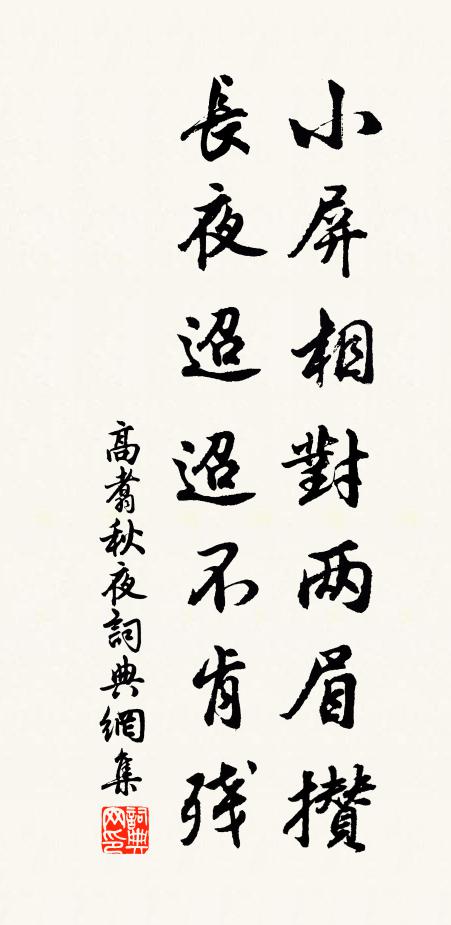 小屏相對两眉攅
長夜迢迢不肯残
高翥秋夜詞典網集
詞典網印